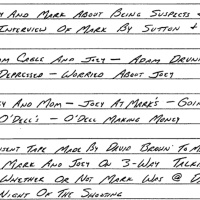 AND MARK ABOUT BEING SUSPECTS &
INTERVIEW OF MARK BY SUTTON &
CABLE AND JOEY — ADAM DRUN
DEPRESSED — WORRIED ABOUT JOEY
AND MOM — JOEY AT MARK'S — GOIN
O'DELL'S — O'DELL MAKING MONEY
TAPE MADE BY DAVID BROWN TO M
MARK AND JOEY ON 3-WAY TALKI
WHETHER OR NOT MARK WAS @ D
NIGHT OF THE SHOOTING